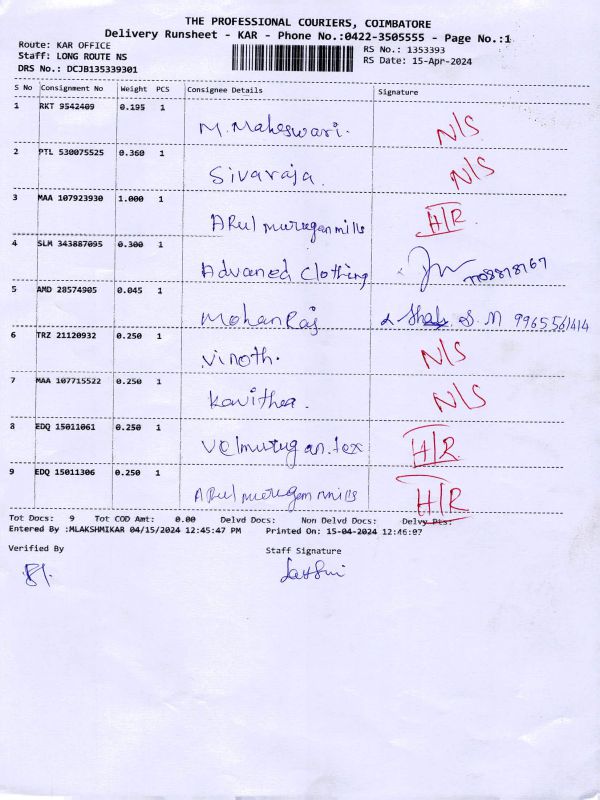 THE PROFESSIONAL COURIERS, COIMBATORE
Delivery Runsheet - KAR - Phone No.:0422-3505555 - Page No.:1
Route: KAR OFFICE
RS No.: 1353393
Staff: LONG ROUTE NS
RS Date: 15-Apr-2024
DRS No.: DCJB135339301
S No Consignment No Weight PCS Consignee Details Signature
1 RKT 9542409 0.195 1
M. Maheswari. N/S
2 PTL 530075525 0.360 1
Sivaraja. N/S
3 MAA 107923930 1.000 1
ARul murugan mills H/R
4 SLM 343887095 0.300 1
Advaned Clothing
5 AMD 28574905 0.045 1
MohanRaj S. M 9965561414
6 TRZ 21120932 0.250 1
Vinoth. N/S
7 MAA 107715522 0.250 1
Kavithea. N/S
8 EDQ 15011061 0.250 1
Velmurugan.tex H/R
9 EDQ 15011306 0.250 1
ARul murugan mills H/R
Tot Docs: 9 Tot COD Amt: 0.00 Delvd Docs: Non Delvd Docs: Delvy Pis:
Entered By :MLAKSHMIKAR 04/15/2024 12:45:47 PM Printed On: 15-04-2024 12:46:07
Verified By Staff Signature